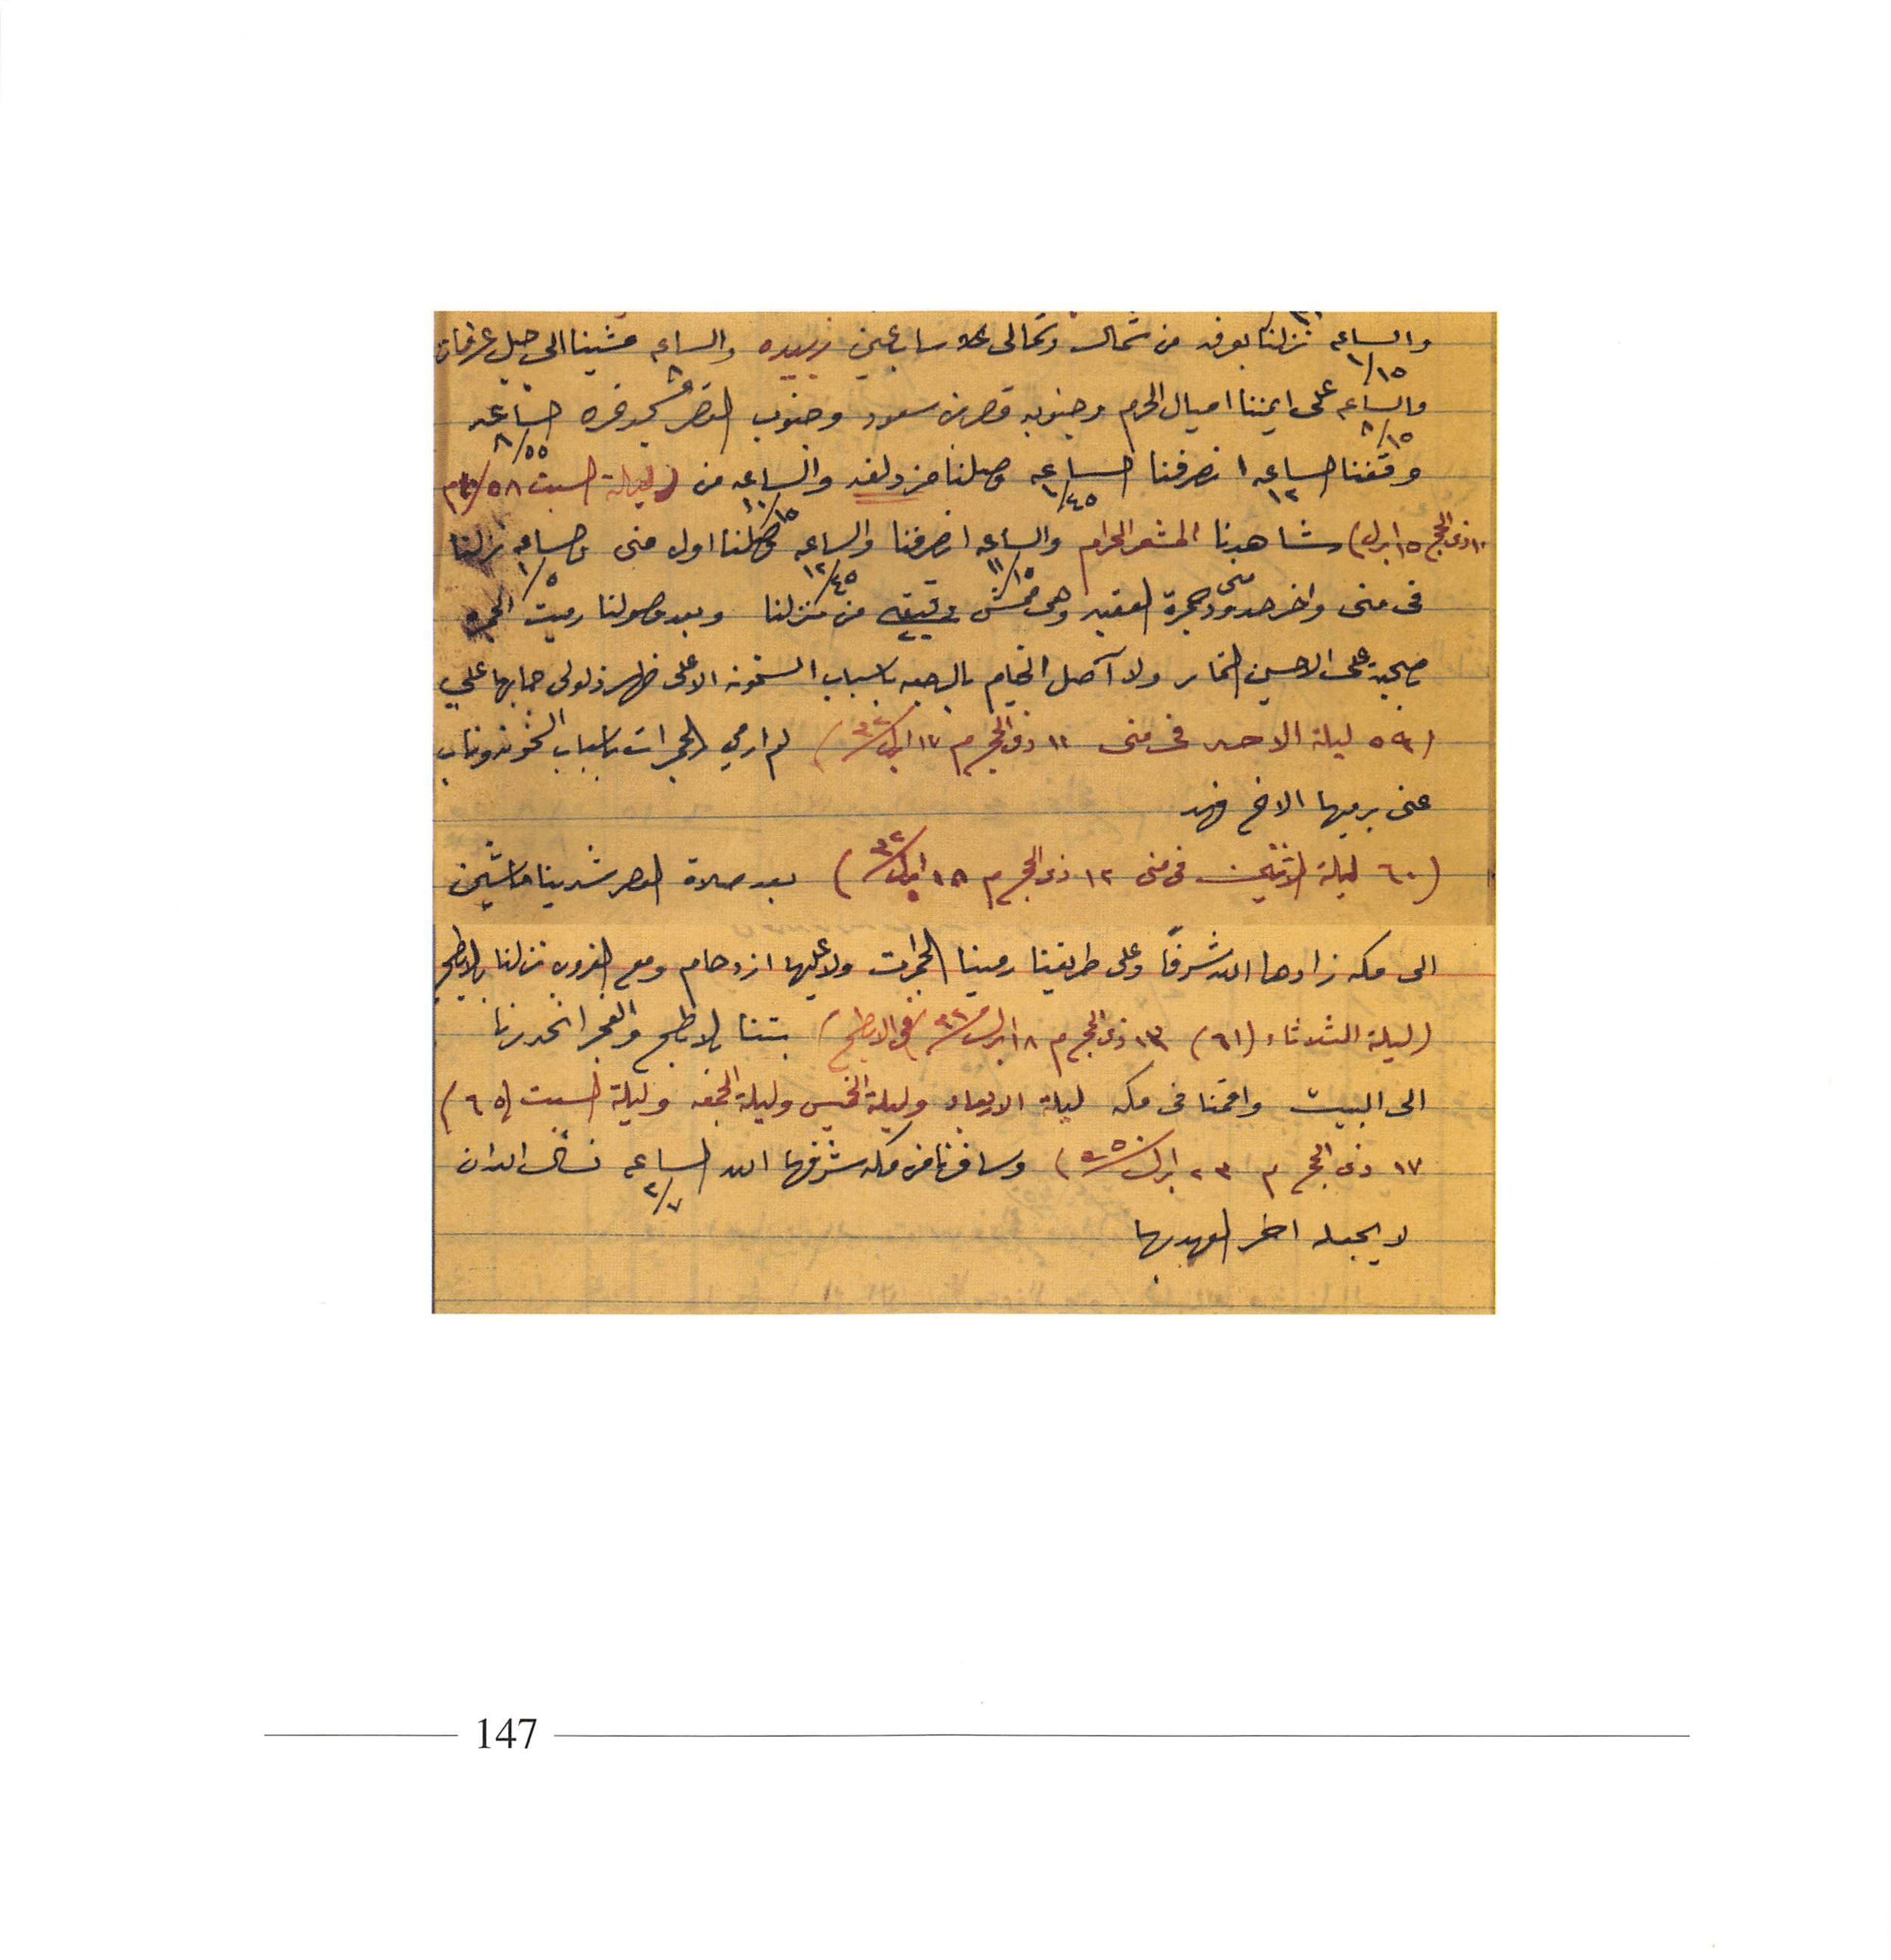 والساعه ١/١٥ نزلنا بعرفه من شمال وشمالى ساب عين زبيده والساعه ٨ مشينا الى جبل عرفات
والساعه ٨/١٥ على ايمننا اميال الحرم وجنوبه قصر بن سعود وجنوب القصر مسجد نمره الساعه ٨/٥٥
وقفنا الساعه ١٢ انصرفنا الساعه ١/٤٥ وصلنا مزدلفه والساعه ١٠/١٥ من (ليلة السبت ٥٨
١٠ ذى الحج ١٥ ابريل) شاهدنا المشعر الحرام والساعه ١١/١٥ انصرفنا والساعه ١٢/٤٥ وصلنا اول منى والساعه ١/٥ نزلنا
فى منى واخر حدود منى جمرة العقبه وهى خمس دقيقه من منزلنا وبعد وصولنا رميت الجمره
ولا آصل الخيام بالرجعه باسباب السخونه الا على ظهر ذلولى جابها علي
(٥٩ ليلة الاحد فى منى ١١ ذى الحج م ١٧ ابريل ٣٢) لم ارمي الجمرات باسباب السخونه وناب
عنى برميها الاخ فهد
(٦٠ ليلة الاثنين فى منى ١٢ ذى الحج م ١٨ ابريل ٣٢) بعد صلاة العصر شدينا ماشين
الى مكه زادها الله شرفًا وعلى طريقنا رمينا الجمرات ولا عليها ازدحام ومع الغروب نزلنا بالابطح
(ليلة الثلاثاء (٦١) ١٣ ذى الحج م ١٨ ابريل ٣٢ فى الابطح) بتنا بالابطح والفجر انحدرنا
الى البيت واقمنا فى مكه ليلة الاربعاء وليلة الخميس وليلة الجمعه وليلة السبت (٦٥)
١٧ ذى الحج م ٢٣ ابريل) وسافرنا من مكه شرفها الله الساعه ٢/٧ نسأل الله ان
لا يجعله اخر العهد بها
147